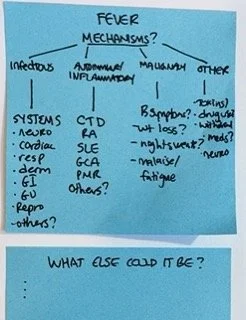 FEVER
MECHANISMS?
Infectious
AUTOIMMUNE/
INFLAMMATORY
MALIGNANCY
OTHER
SYSTEMS
• neuro
• cardiac
• resp
• derm
• GI
• GU
• Repro
-others?
CTD
RA
SLE
GCA
PMR
Others?
B symptoms?
-wt loss?
-nightsweats?
-malaise/
fatigue
-Toxins/
drug use?
-withdrawal
-meds?
-neuro
WHAT ELSE COULD IT BE?